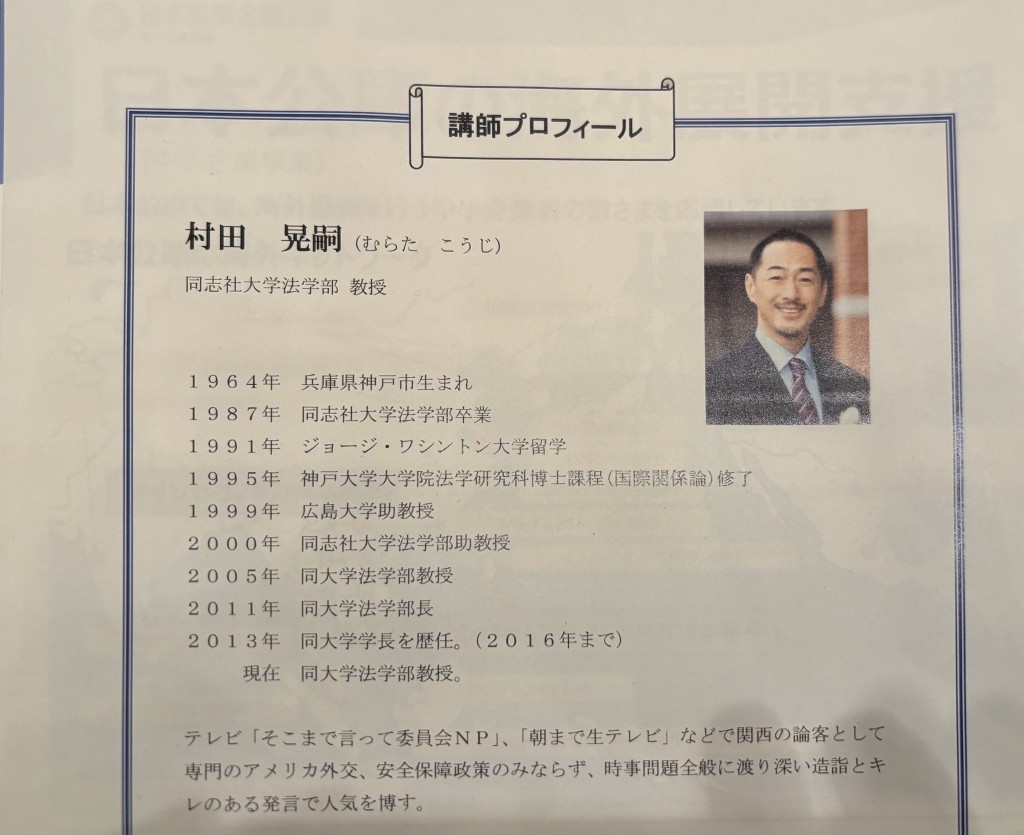 講師プロフィール
村田 晃嗣(むらた こうじ)
同志社大学法学部 教授
1964年 兵庫県神戸市生まれ
1987年 同志社大学法学部卒業
1991年 ジョージ・ワシントン大学留学
1995年 神戸大学大学院法学研究科博士課程(国際関係論)修了
1999年 広島大学助教授
2000年 同志社大学法学部助教授
2005年 同大学法学部教授
2011年 同大学法学部長
2013年 同大学学長を歴任。(2016年まで)
現在 同大学法学部教授。
テレビ「そこまで言って委員会NP」、「朝まで生テレビ」などで関西の論客として
専門のアメリカ外交、安全保障政策のみならず、時事問題全般に渡り深い造詣とキ
レのある発言で人気を博す。